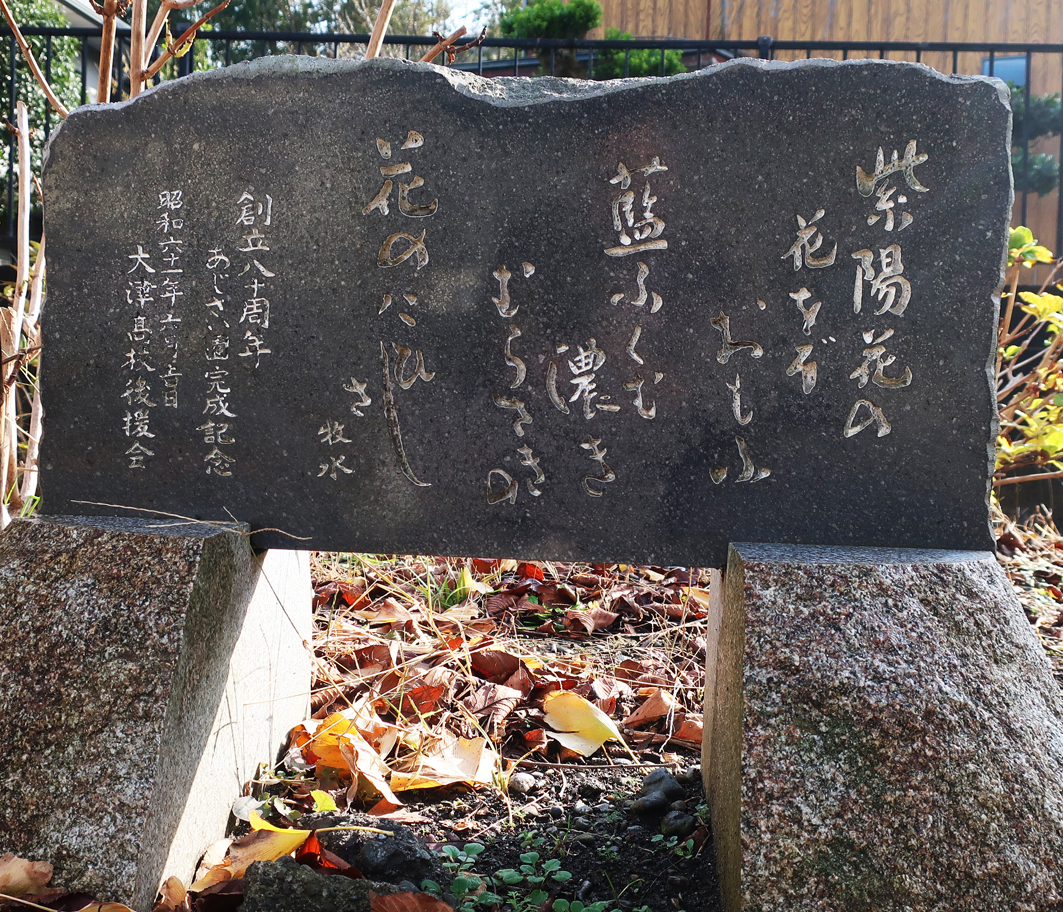 紫陽花の
花をぞ
おもふ
藍ふくむ
濃き
むらさきの
花のこひし
さ
牧水
創立八十周年
あじさい園完成記念
昭和六十一年六月吉日
大津髙校後援会